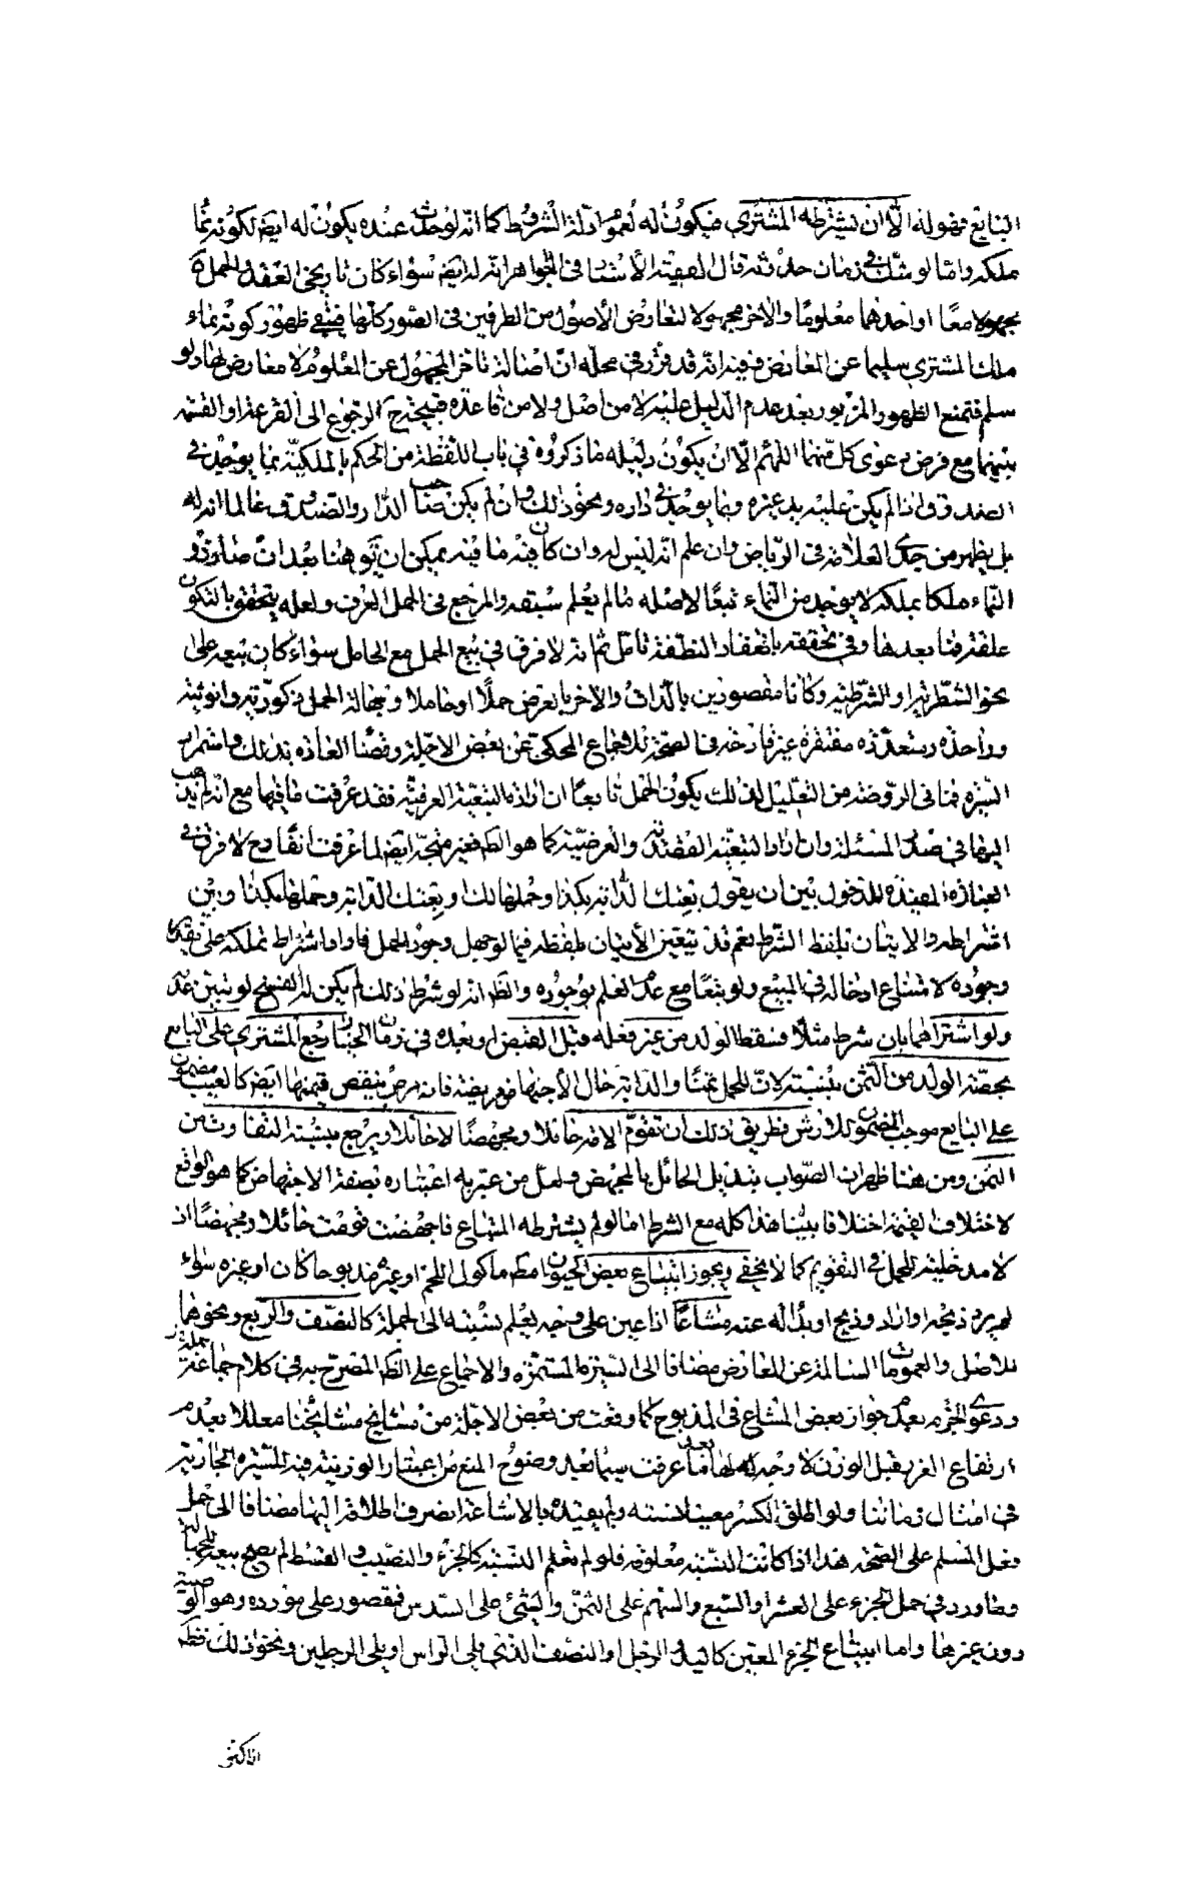 البايع وقوله الا ان يشترطه المشتري فيكون له لعموم ادلة الشروط كما انه لو حدث عنده يكون له ايض لكونه نماء
ملكه واما لو شك في زمان حدوثه قال الفقيه الأستاد في الجواهر انه له ايض سواء كان تاريخي العقد والحمل
مجهولا معا او احدهما معلوما والاخر مجهولا لتعارض الأصول من الطرفين في الصور كلها فيبقى ظهور كونه نماء
ملك المشتري سليما عن المعارض وفيه انه قد قرر في محله ان اصالة تاخر المجهول عن المعلوم لا معارض لها ولو
سلم فنمنع الظهور المزبور بعد عدم الدليل عليه لا من اصل ولا من قاعدة فيتجه ح الرجوع الى القرعة او القسمة
بينهما مع فرض دعوى كل منهما اللهم الا ان يكون دليله ما ذكروه في باب اللقطة من الحكم بالملكية بما يوجد في
الصندوق اذا لم يكن عليه يد غيره وبما يوجد في داره ونحو ذلك وان لم يكن صاحب الدار والصندوق عالما انه له
بل يظهر من جدي العلامة في الرياض وان علم انه ليس له وان كان فيه ما فيه يمكن ان يق هنا بعد ان صار ذو
النماء ملكا بملكه لا يوجد من النماء تبعا لاصله ما لم يعلم سبقه والمرجع في الحمل العرف ولعله يتحقق بالتكون
علقة فما بعدها وفي تحققه بانعقاد النطفة تامل ثم انه لا فرق في بيع الحمل مع الحامل سواء كان بيعه على
نحو الشطرية او الشرطية وكانا مقصودين بالذات والاخر بالعرض حملا او حاملا وجهالة الحمل ذكورته وانوثته
ووحدة وتعدده مغتفرة غير قادحة في الصحة للاجماع المحكي عن بعض الاجلة وقضاء العادة بذلك واستمرار
السيرة فما في الروضة من التعليل لذلك بكون الحمل تابعا ان اراد بالتبعية العرفية فقد عرفت ما فيها مع انه لم يذهب
اليها في صدر المسئلة وان اراد التبعية القصدية والعرضية كما هو الظ فغير متجه ايض لما عرفت انفا ح لا فرق في
العبارة المفيدة للدخول بين ان يقول بعتك الدابة بكذا وحملها لك او بعتك الدابة وحملها بكذا وبين
اشتراطه والاتيان بلفظ الشرط نعم قد يتعين الأتيان بلفظه فيما لو جهل وجود الحمل فاراد اشتراط تملكه على تقدير
وجوده لامتناع ادخاله في المبيع ولو تبعا مع عدم العلم بوجوده والظ انه لو شرط ذلك لم يكن له الفسخ لو تبين عدمه
ولو اشتراهما بان شرط مثلا فسقط الولد من غير فعله قبل القبض او بعده في زمان الخيار رجع المشتري على البايع
بحصة الولد من الثمن بنسبته لان للحمل ثمنا والدابة حال الأجهاض مريضة فانه مرض ينقص قيمتها ايض كالعيب مضمون
على البايع موجب للارش فطريق ذلك ان تقوم الامة حائلا ومجهضا لا حائلا ويرجع بنسبة التفاوت من
الثمن ومن هنا ظهر ان الصواب تبديل الحائل بالمجهض ولعل من عبر به اعتباره بصفة الاجهاض كما هو الواقع
لاختلاف القيمة اختلافا بينا هذا كله مع الشرط اما لو لم يشترطه المبتاع فاجهضت قومت حائلا ومجهضا اذ
لا مدخلية للحمل في التقويم كما لا يخفى ويجوز ابتياع بعض الحيوان مط ماكول اللحم او غيره مذبوحا كان او غيره سواء
لم يرد ذبحه او اراد وذبح او بدا له عنه مشاعا اذا عين على وجه يعلم نسبته الى الجملة كالنصف والربع ونحوها
للاصل والعمومات السالمة عن المعارض مضافا الى السيرة المستمرة والاجماع على الظ المصرح به في كلام جماعة
ودعوى الجزم بعدم جواز بعض المشاع في المذبوح كما وقعت من بعض الاجلة من مشايخ مشايخنا معللا بعدم
ارتفاع الغرر قبل الوزن لا وجه له لها بعد ما عرفت سيما بعد وضوح المنع من اعتبار الوزنية فيه للسيرة الجارية
في امثال زماننا ولو اطلق الكسر معينا لنسبته ولم يقيده بالاشاعة انصرف اطلاقه اليها مضافا الى حمل
فعل المسلم على الصحة هذا اذا كانت النسبة معلومة فلو لم تعلم النسبة كالجزء والنصيب والقسط لم يصح بيعه للجهالة
وما ورد في حمل الجزء على العشر او السبع والسهم على الثمن والشئ على السدس فمقصور على مورده وهو الوصية
دون غيرها واما ابتياع الجزء المعين كاليد او الرجل او النصف الذي يلي الراس او يلي الرجلين ونحو ذلك فظ